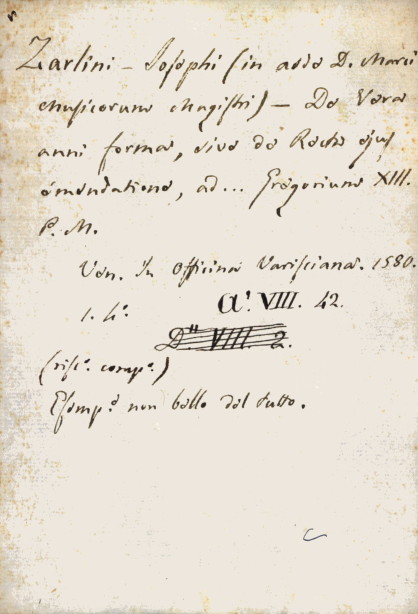 Zarlini - Josephi (in aede D. Marci
Musicorum Magistri) - De Vera
anni forma, sive de Recta ejus
emendatione, ad... Gregorium XIII.
P. M.
Ven. In Officina Varisciana. 1580.
1. 4°.
A¹. VIII. 42.
D" VIII. 2.
(risc°. comp°.)
Esemp.e non bello del tutto.